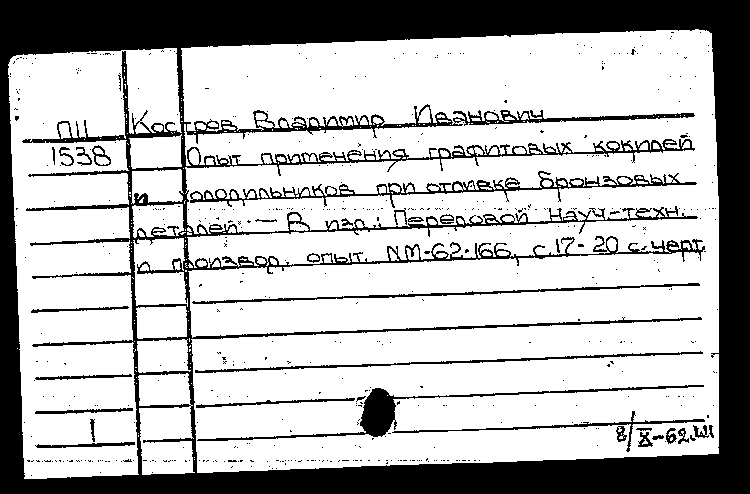 П11 Костров, Владимир Иванович
1538 Опыт применения графитовых кокилей
и холодильников при отливке бронзовых
деталей. — В изд.: Передовой науч-техн.
и производ. опыт. NМ-62-166, с.17-20 с черт.
1
8/X-62.